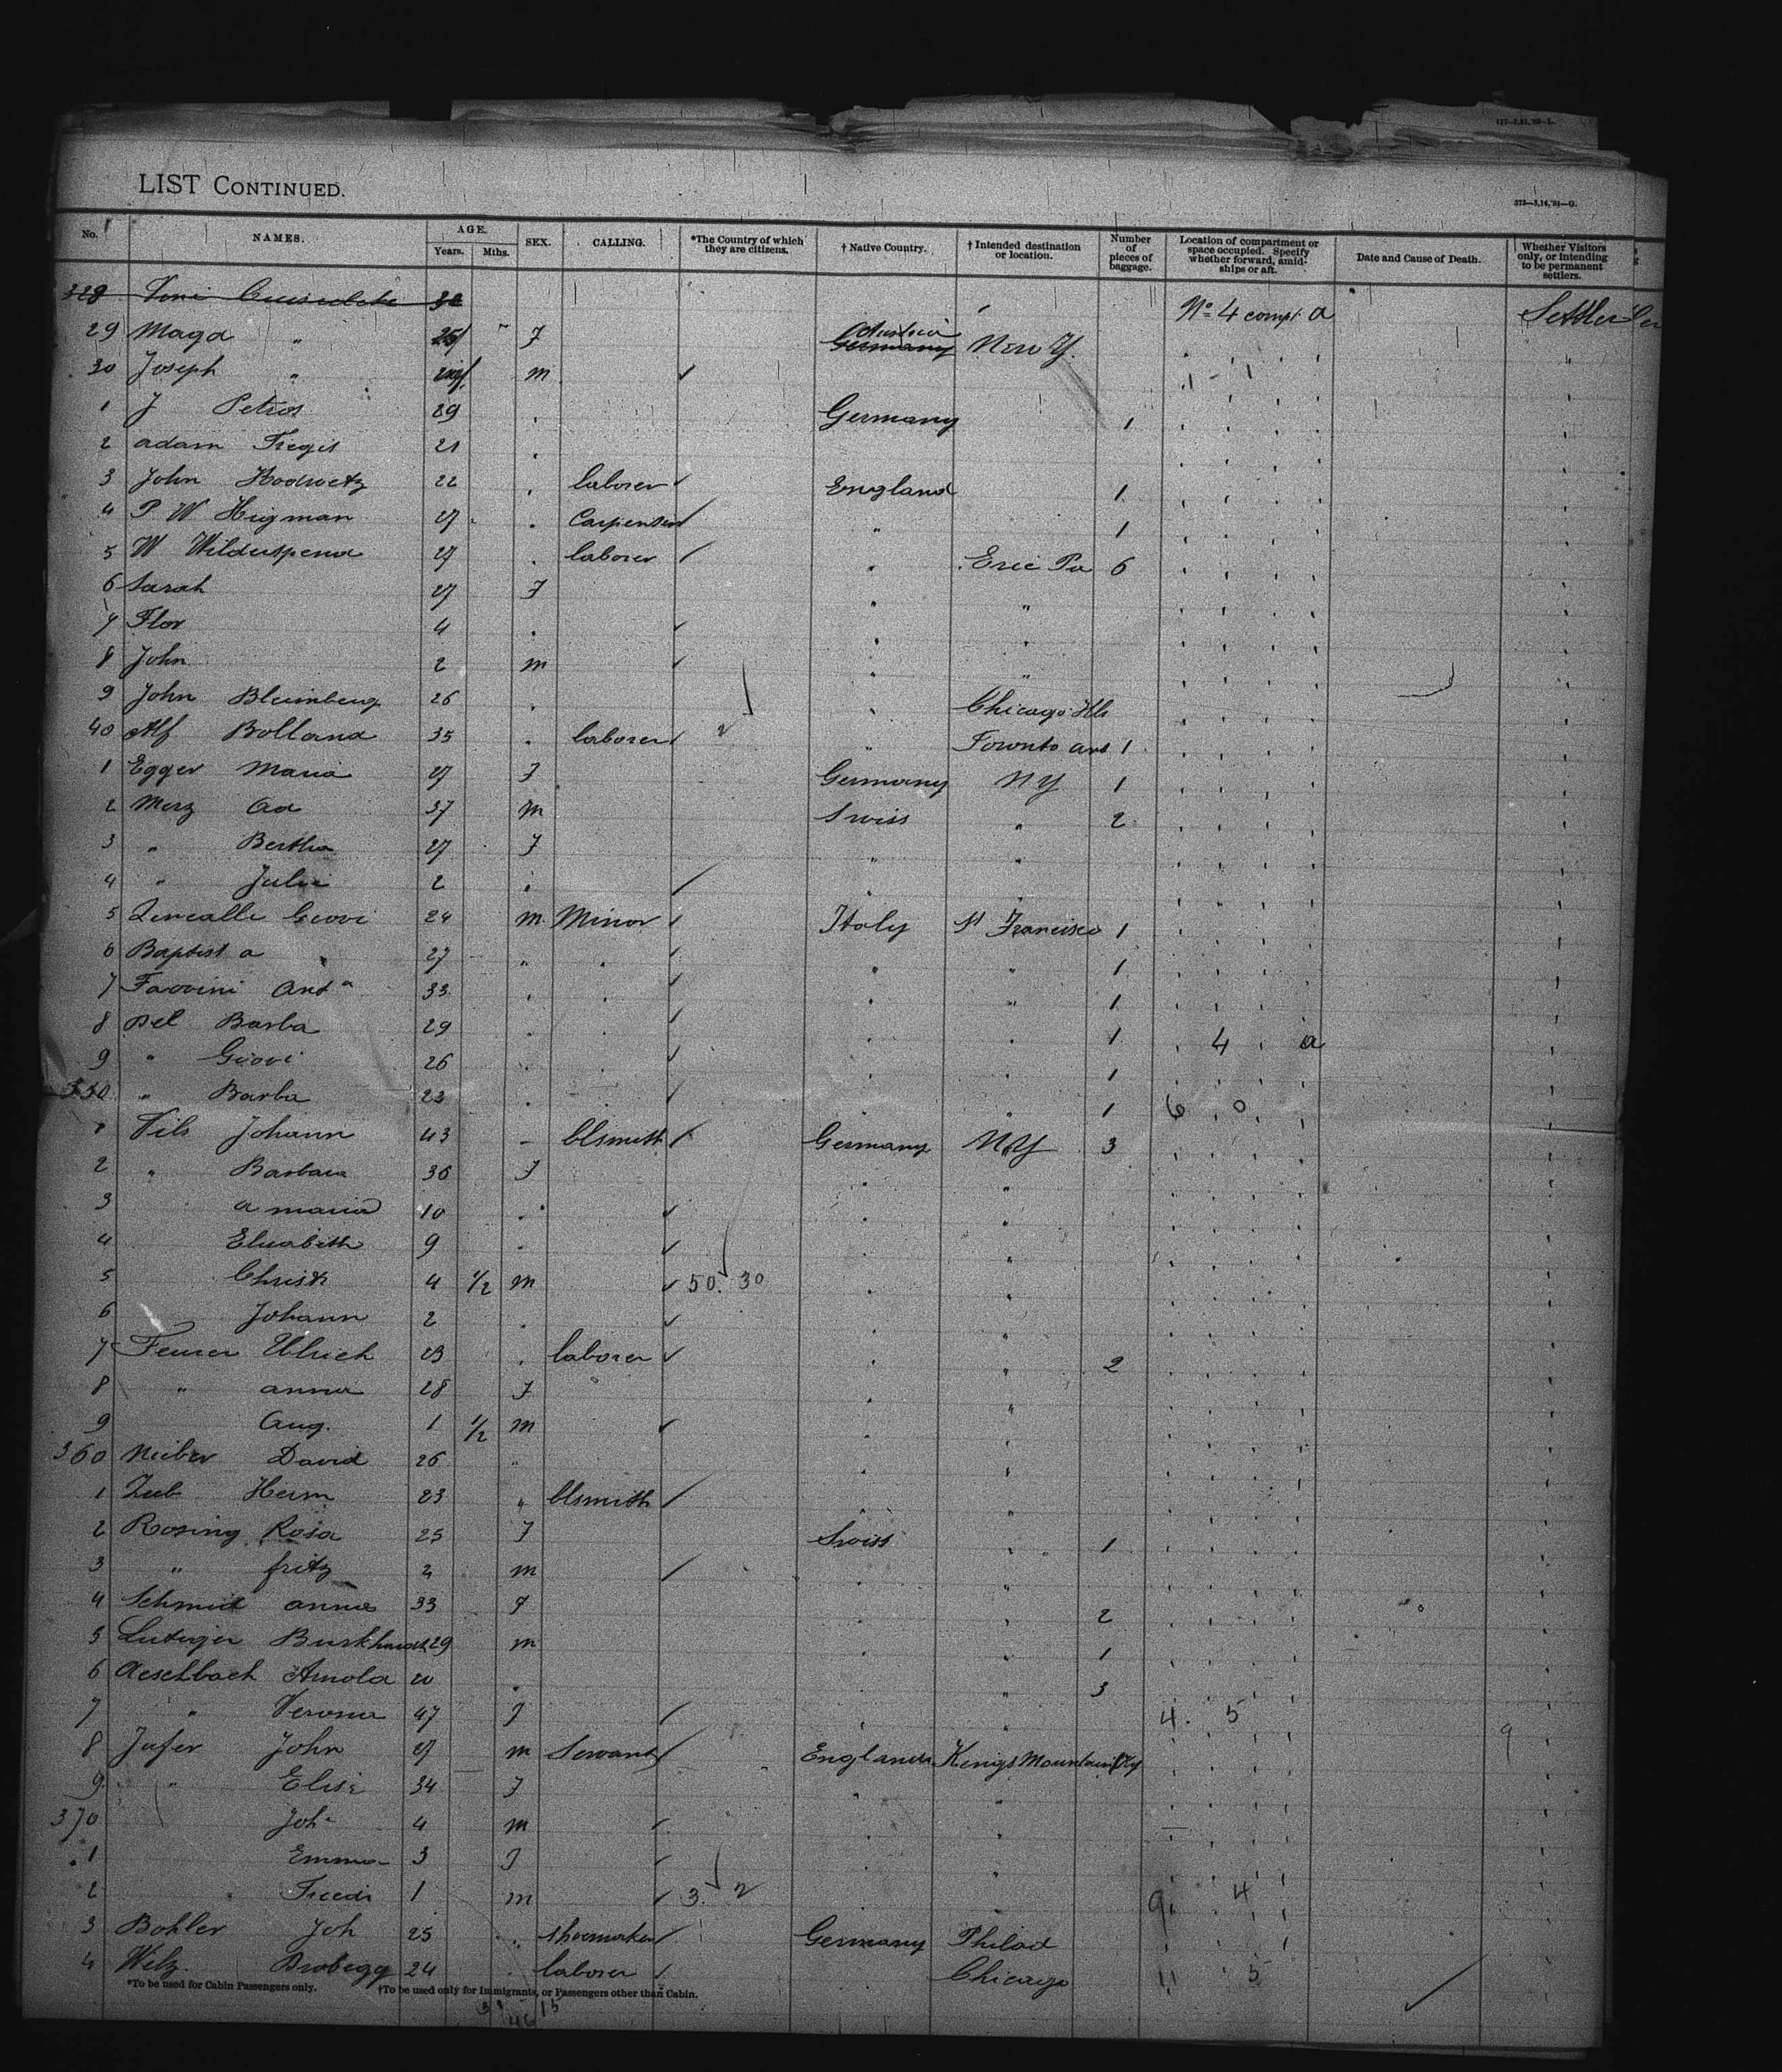 117-7,21,'93-L.
LIST CONTINUED.
373-3,14,'94-G.
No. NAMES. AGE. Years. Mths. SEX. CALLING. *The Country of which they are citizens. † Native Country. † Intended destination or location. Number of pieces of baggage. Location of compartment or space occupied. Specify whether forward, amidships or aft. Date and Cause of Death. Whether Visitors only, or intending to be permanent settlers.
328 No 4 compt a Settler
29 Magd " F Austria Germany New Y.
30 Joseph " m
1 J Petros 29 Germany 1
2 adam 21
3 John 22 laborer England 1
4 P W Higman 27 Carpenter " 1
5 W 27 laborer Erie Pa 6
6 Sarah 27 F "
7 Flor 4
8 John 2 m "
9 John Blumberg 26 Chicago Ills
40 Alf Bolland 35 laborer " Toronto 1
1 Egger Maria 27 F Germany N Y 1
2 Merz Ad 37 m Swiss " 2
3 " Bertha 27 F "
4 " Julie 2
5 Giovi 24 m Minor Italy St Francisco 1
6 Baptist a 27 " " 1
7 Favvini Anta 33 " 1
8 Del Barba 29 1 4 a
9 " Giovi 26 1
350 " Barba 23 1 6 0
1 Vils Johann 43 Blsmith Germany N Y 3
2 " Barbara 36 F "
3 a maria 10
4 Elisabeth 9
5 Christ 4 1/2 m 50. 30
6 Johann 2
7 Feurer Ulrich 23 laborer 2
8 " anna 28 F
9 Aug. 1 1/2 m
360 David 26 "
1 Herm 23 " Blsmith
2 Rosing Rosa 25 F Swiss 1
3 " fritz 2 m
4 Schmid anna 33 F 2
5 29 m 1
6 Aeschbach Arnold 20 3
7 " Verona 47 F 4. 5
8 Jufer John 27 m Servant England Kings Mountain Ky
9 " Elise 34 F
370 Joh 4 m
1 Emma 3 F
2 1 m 3. 2 9 4
3 Bohler Joh 25 shoemaker Germany Philad
4 24 laborer Chicago 11 5
*To be used for Cabin Passengers only. †To be used only for Immigrants, or Passengers other than Cabin.